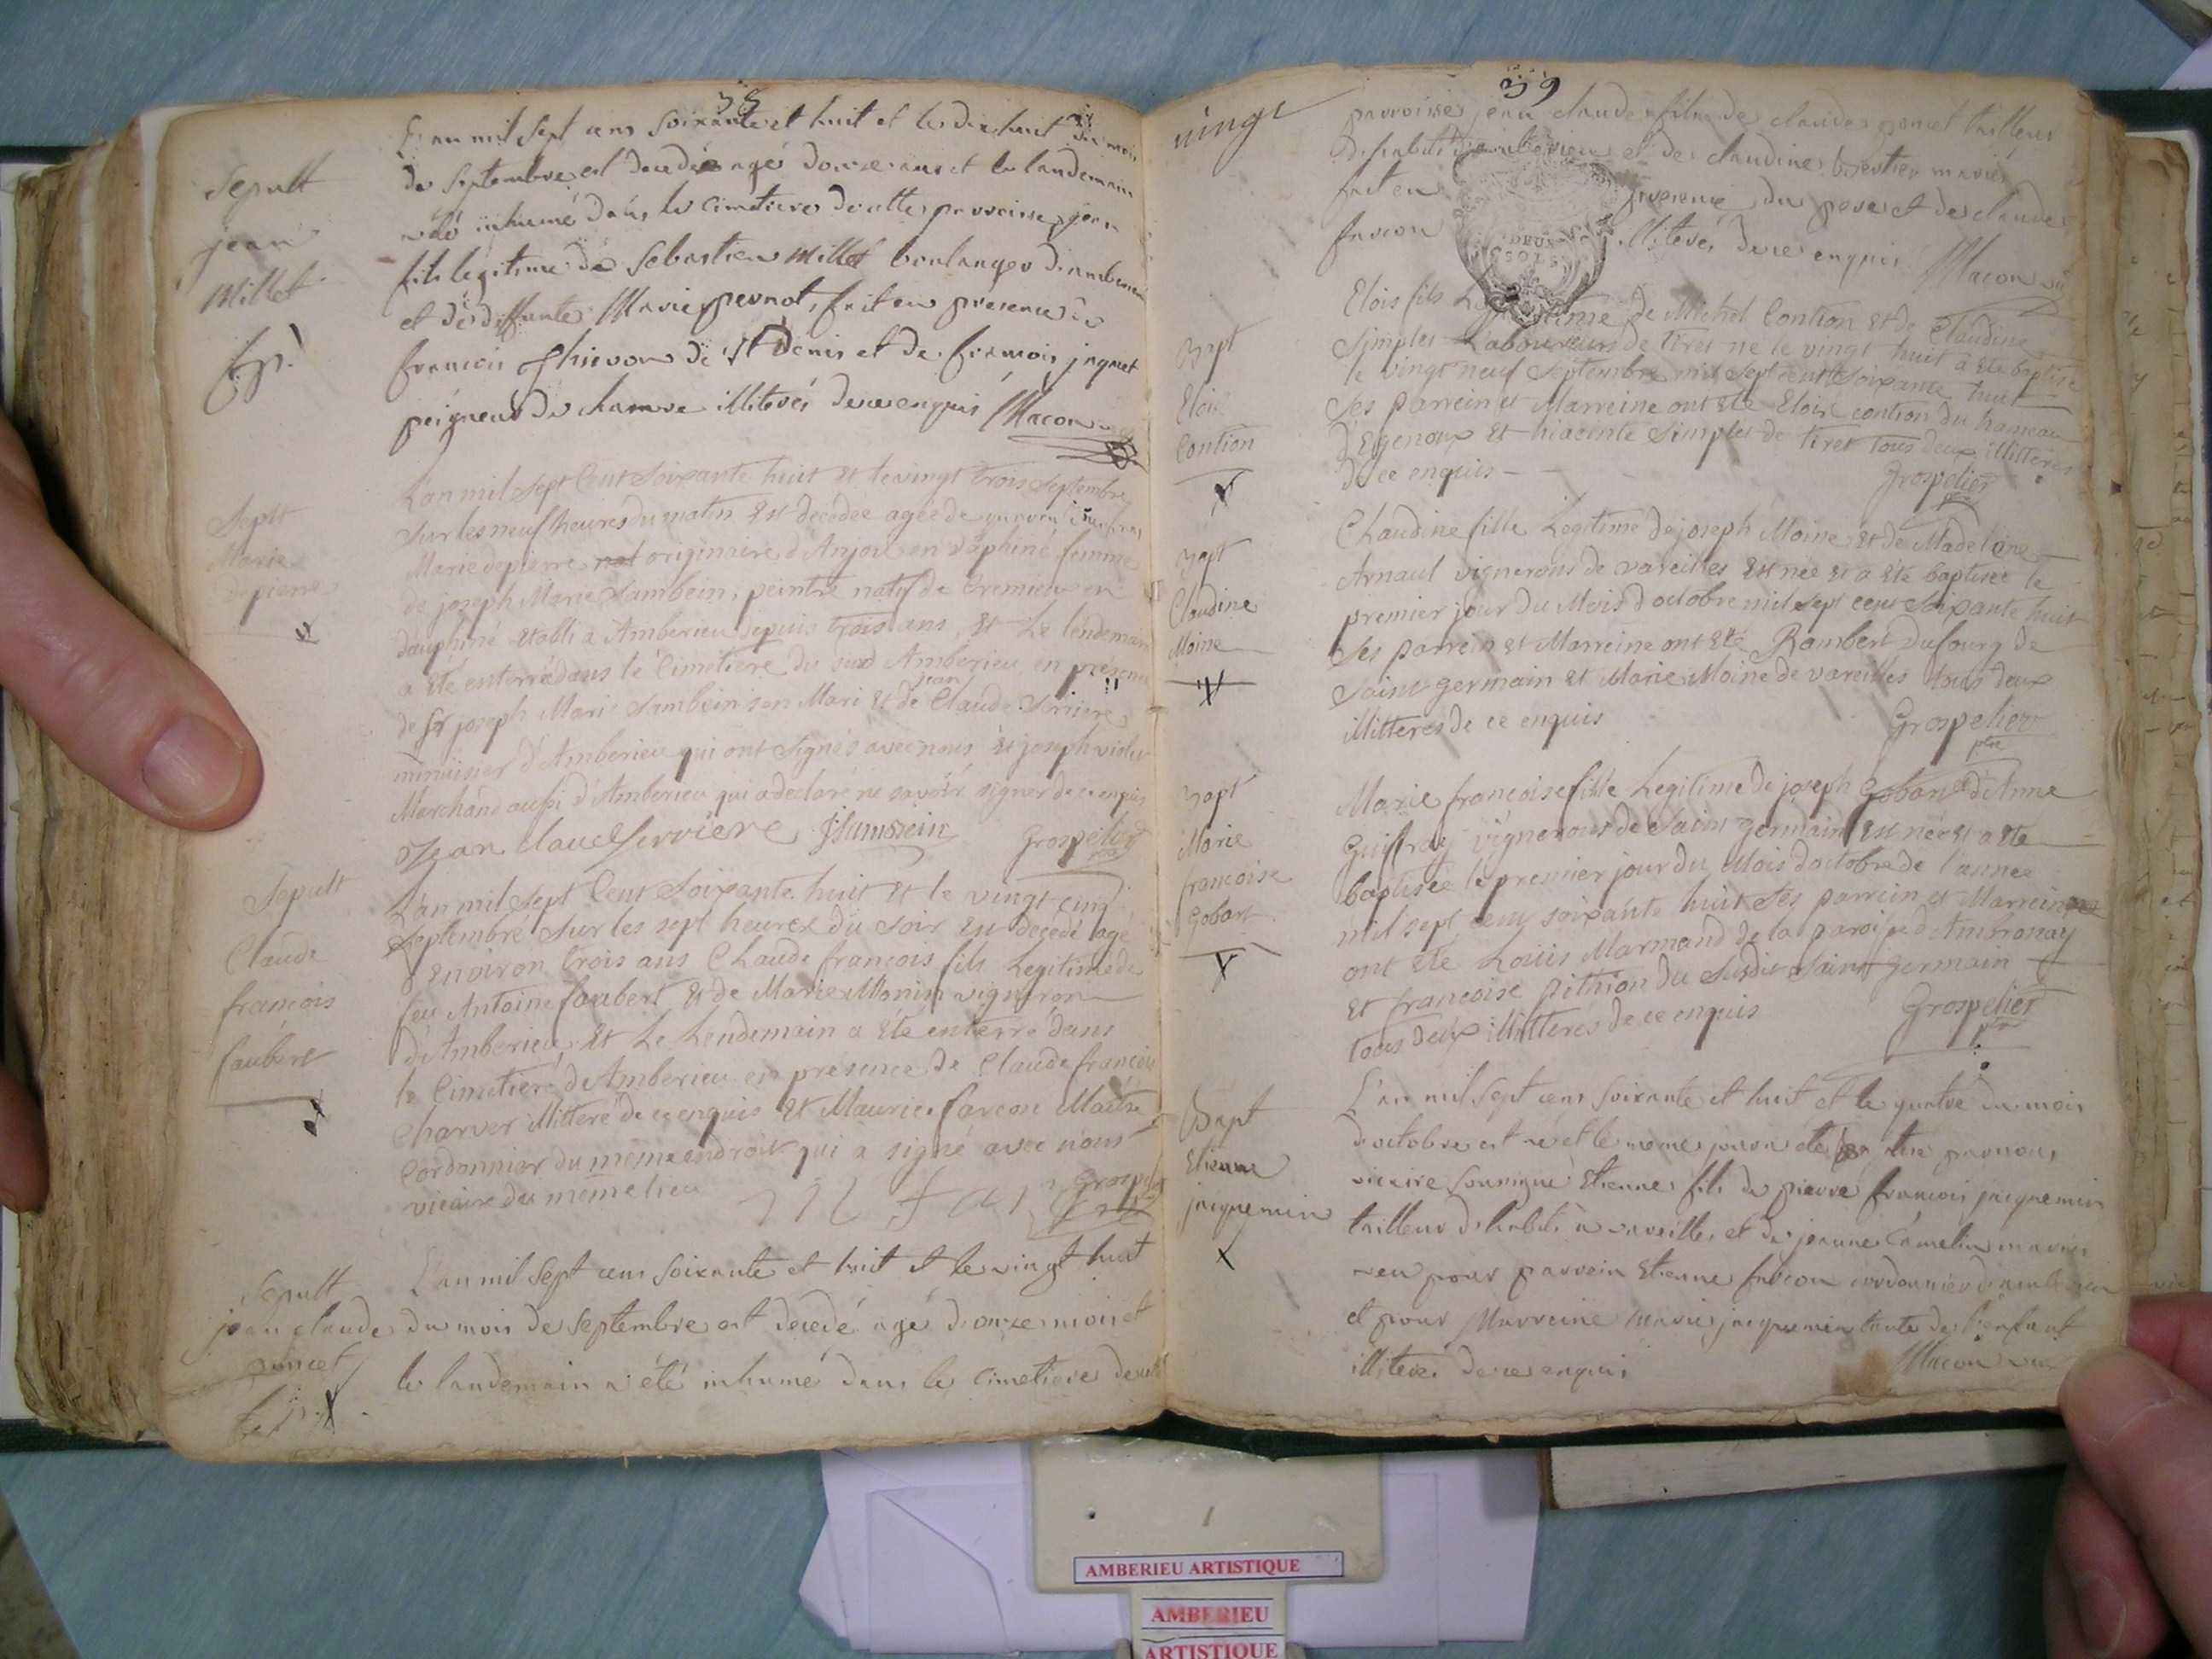 38
L'an mil sept cens soixante et huit et le dix huit du mois
de septembre est decedé agé douze ans et le landemain
a été inhumé dans le cimetiere de cette parroisse jean
fils legitime de Sebastien Millet boulanger d'amberieu
et de deffunte Marie pernot, fait en presence de
francois Thievon de St Denis et de francois jaquet
peigneur de chanvre illiterés de ce enquis Macon
Sepult
jean
Millet
L'an mil sept Cent Soixante huit et le vingt trois septembre
sur les neuf heures du matin Est decedée agée de
Marie depierre originaire d'Anjou en daphiné femme
de joseph Marie Sambein, peintre natif de Cremieu en
dauphiné etabli a Amberieu depuis trois ans, Et Le lendemain
a été enterrée dans le Cimetiere du susd Amberieu en presence
de Sr joseph Marie Sambein son Mari Et de jean Claude Serriere
menuisier d'Amberieu qui ont signés avec nous Et joseph violet
Marchand aussi d'Amberieu qui a declaré ne savoir signer de ce enquis
Jean Claude Serriere JSambein Grospelier
Sepult
Marie
depierre
L'an mil sept Cent Soixante huit Et le vingt cinq
Septembre sur les sept heures du soir Est decedé agé
d'environ trois ans Claude francois fils Legitime de
feu Antoine faubert Et de Marie Monin vigneron
d'Amberieu, Et Le Lendemain a été enterré dans
le Cimetiere d'Amberieu en presence de Claude francois
Charver illitteré de ce enquis Et Maurice farcon Maitre
Cordonnier du meme endroit qui a signé avec nous
vicaire du meme lieu
Sepult
Claude
francois
faubert
L'an mil sept cens soixante et huit et le vingt huit
du mois de septembre est décedé agé d'onze mois et
le landemain a été inhumé dans le cimetiere de cette
Sepult
jean claude
poncet
vingt
39
parroisse jean claude fils de claude poncet tailleur
d'habits d'amberieu et de claudine Bertier mariés
fait en presence du pere et de claude
farcon illiterés de ce enquis Macon vic
DEUX
SOLS
Elois fils Legitime de Michel Contion et de Claudine
Simples Laboureurs de tiret né le vingt huit a été baptisé
le vingt neuf Septembre mil sept cent soixante huit
Ses parrein et Marreine ont été Eloix contion du hameau
D'Egenoux Et hiacinte Simples de tiret tous deux illitteres
de ce enquis
Grospelier
Bapt
Eloix
Contion
Claudine fille Legitime de joseph Moine et de Madelene
Arnaul vignerons de vareilles Est née et a été baptisée le
premier jour du Mois d'octobre mil sept cent soixante huit
Ses parrein et Marreine ont été Rambert Dufourg de
Saint germain et Marie Moine de vareilles tous deux
illitteres de ce enquis Grospelier
ptre
Bapt
Claudine
Moine
Marie francoise fille Legitime de joseph Gobart et d'Anne
Guiffray vignerons de Saint germain Est née et a été
baptisée le premier jour du Mois d'octobre de l'année
mil sept cent soixante huit Ses parrein et Marreine
ont été Loüis Marmand de la paroisse d'Ambronay
Et francoise pithion du susdit Saint germain
tous deux illitteres de ce enquis Grospelier
ptre
Bapt
Marie
francoise
Gobart
L'an mil sept cens soixante et huit et le quatre du mois
d'octobre est né et le meme jour a été par nous
vicaire soussigné Etienne fils de pierre francois jacquemin
tailleur d'habits a vareilles et de jeanne Camelin mariés
a eu pour parrein Etienne farcon cordonnier d'amberieu
et pour Marreine marie jacquemin tante de l'enfant
illiterés de ce enquis Macon vic
Bapt
Etienne
jacquemin
AMBERIEU ARTISTIQUE
AMBERIEU
ARTISTIQUE